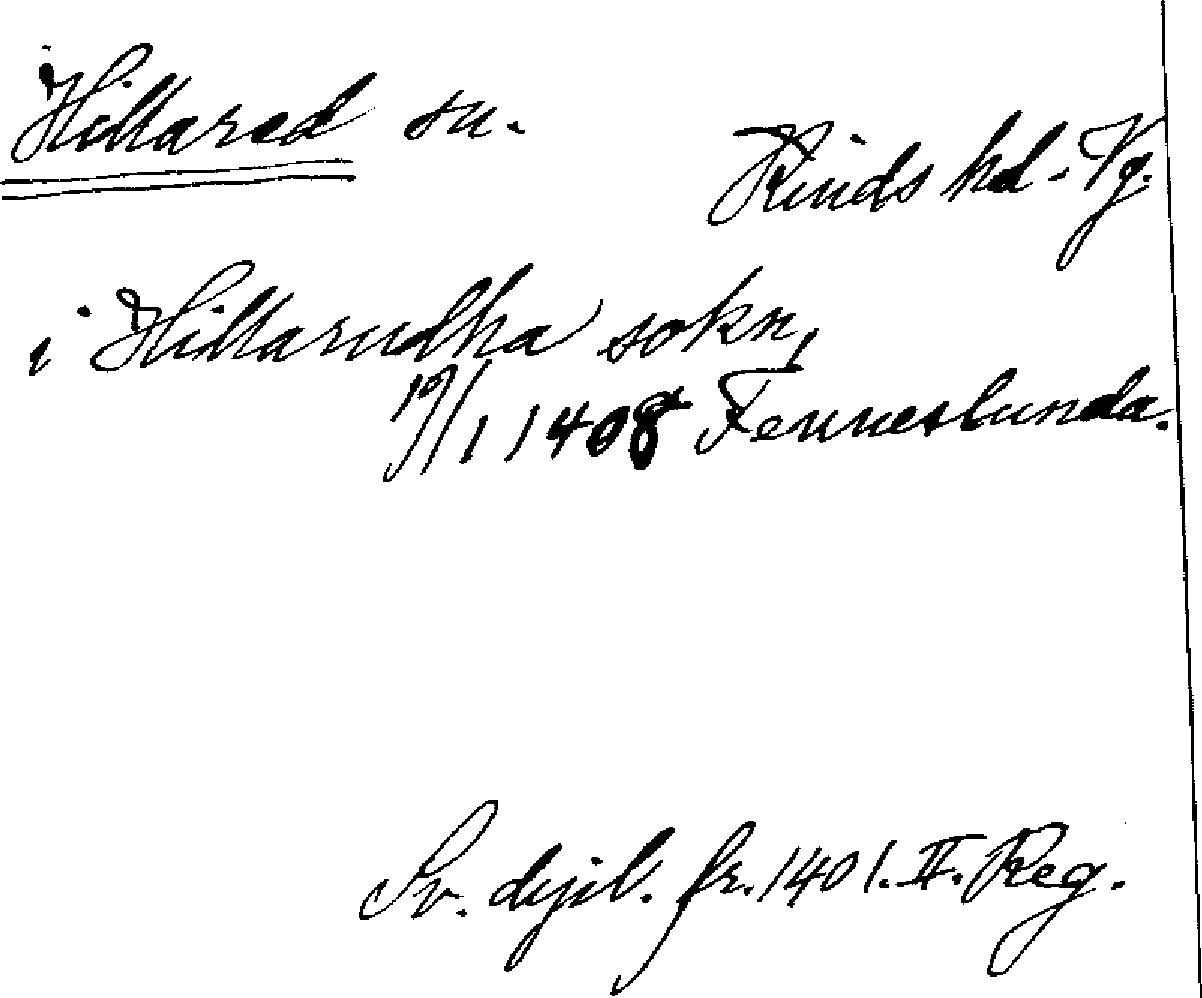 Hillared sn.
Kinds hd. Vg.
i Hillarudha sokn,
19/1 1408 Fenneslunda.
Sv. dipl. fr. 1401. II. Reg.